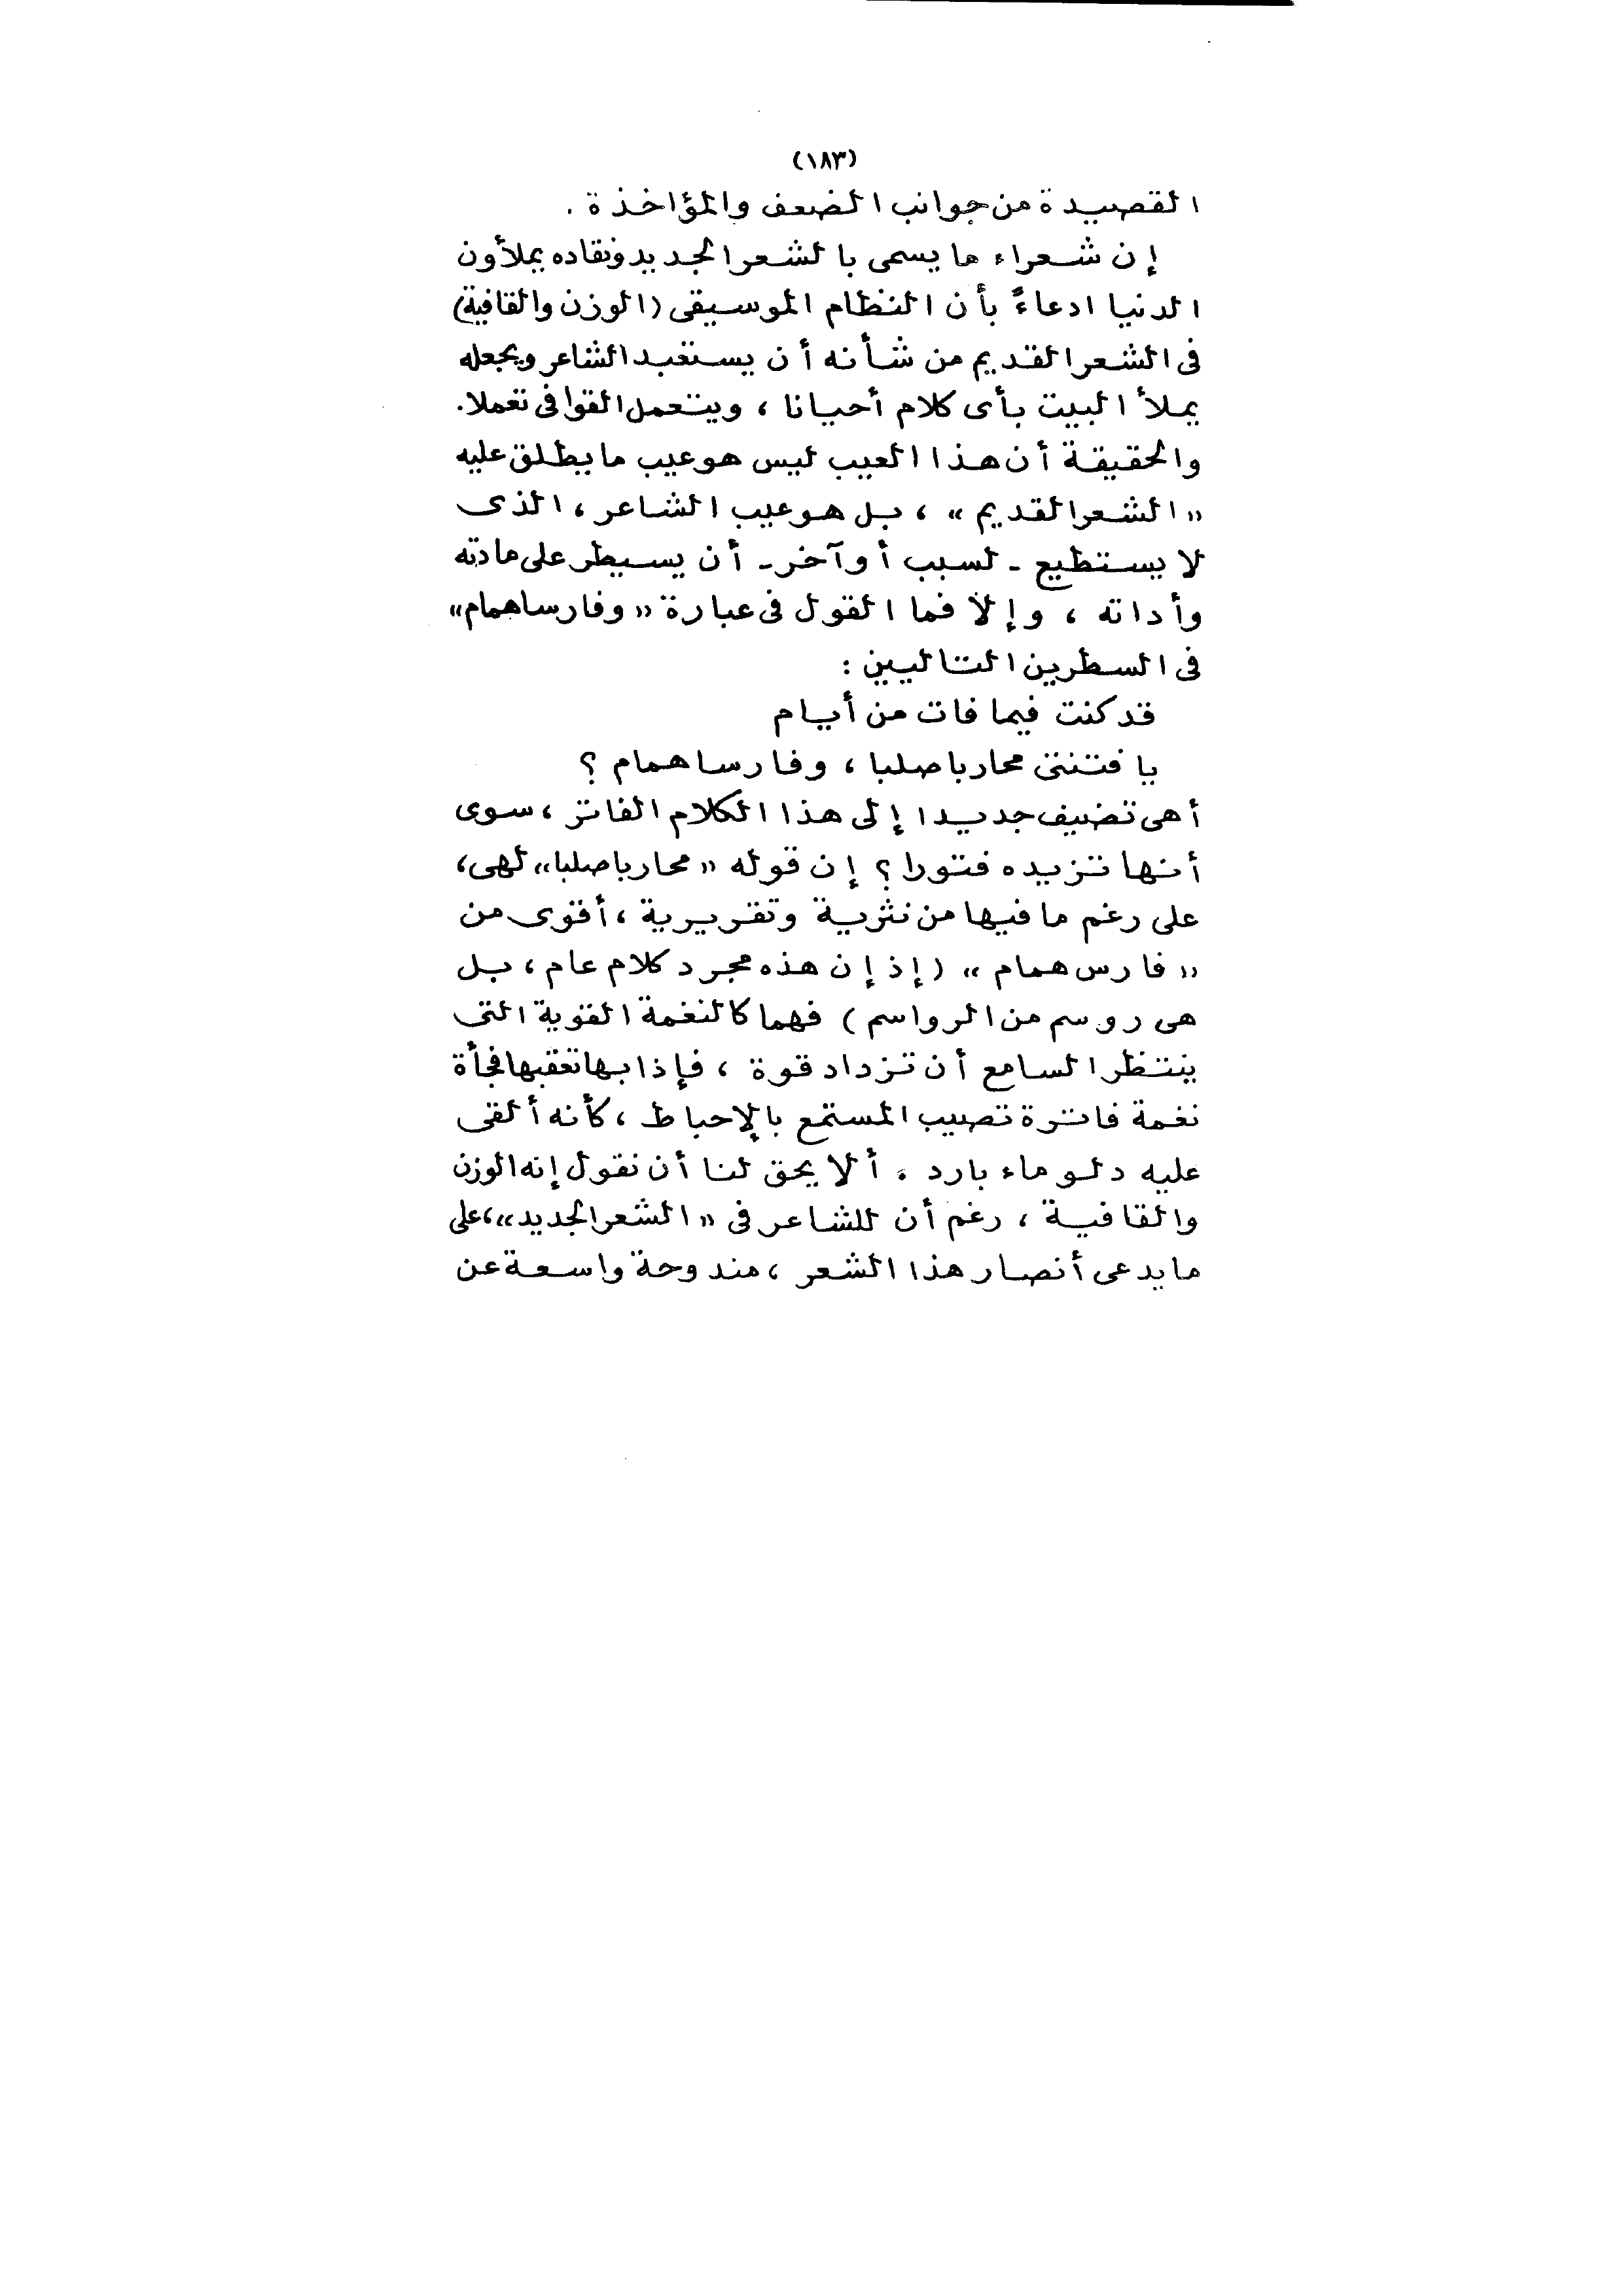 (١٨٣)
القصيدة من جوانب الضعف والمؤاخذة .
إن شعراء ما يسمى بالشعر الجديد ونقاده يملأون
الدنيا ادعاءً بأن النظام الموسيقى (الوزن والقافية)
فى الشعر القديم من شأنه أن يستعبد الشاعر ويجعله
يملأ البيت بأى كلام أحيانا ، ويتعمل القوافى تعملا.
والحقيقة أن هذا العيب ليس هو عيب ما يطلق عليه
« الشعر القديم » ، بل هو عيب الشاعر ، الذى
لا يستطيع ـ لسبب أو آخر ـ أن يسيطر على مادته
وأداته ، وإلا فما القول فى عبارة « وفارسا همام »
فى السطرين التاليين :
قد كنت فيما فات من أيام
يا فتنتى محاربا صلبا ، وفارسا همام ؟
أهى تضيف جديدا إلى هذا الكلام الفاتر ، سوى
أنها تزيده فتورا ؟ إن قوله « محاربا صلبا » لهى ،
على رغم ما فيها من نثرية وتقريرية ، أقوى من
« فارس همام » (إذ إن هذه مجرد كلام عام ، بل
هى روسم من الرواسم) فهما كالنغمة القوية التى
ينتظر السامع أن تزداد قوة ، فإذا بها تعقبها فجأة
نغمة فاترة تصيب المستمع بالإحباط ، كأنه ألقى
عليه دلو ماء بارد . ألا يحق لنا أن نقول إنه الوزن
والقافية ، رغم أن للشاعر فى « الشعر الجديد » ، على
ما يدعى أنصار هذا الشعر ، مندوحة واسعة عن